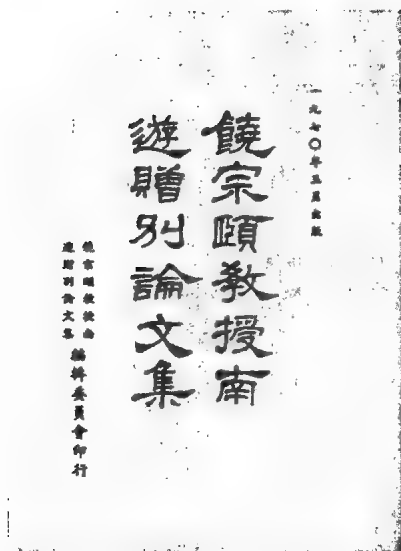 一九七〇年五月出版
饒宗頤教授南
遊贈別論文集
饒宗頤教授南
遊贈別論文集
編輯委員會印行